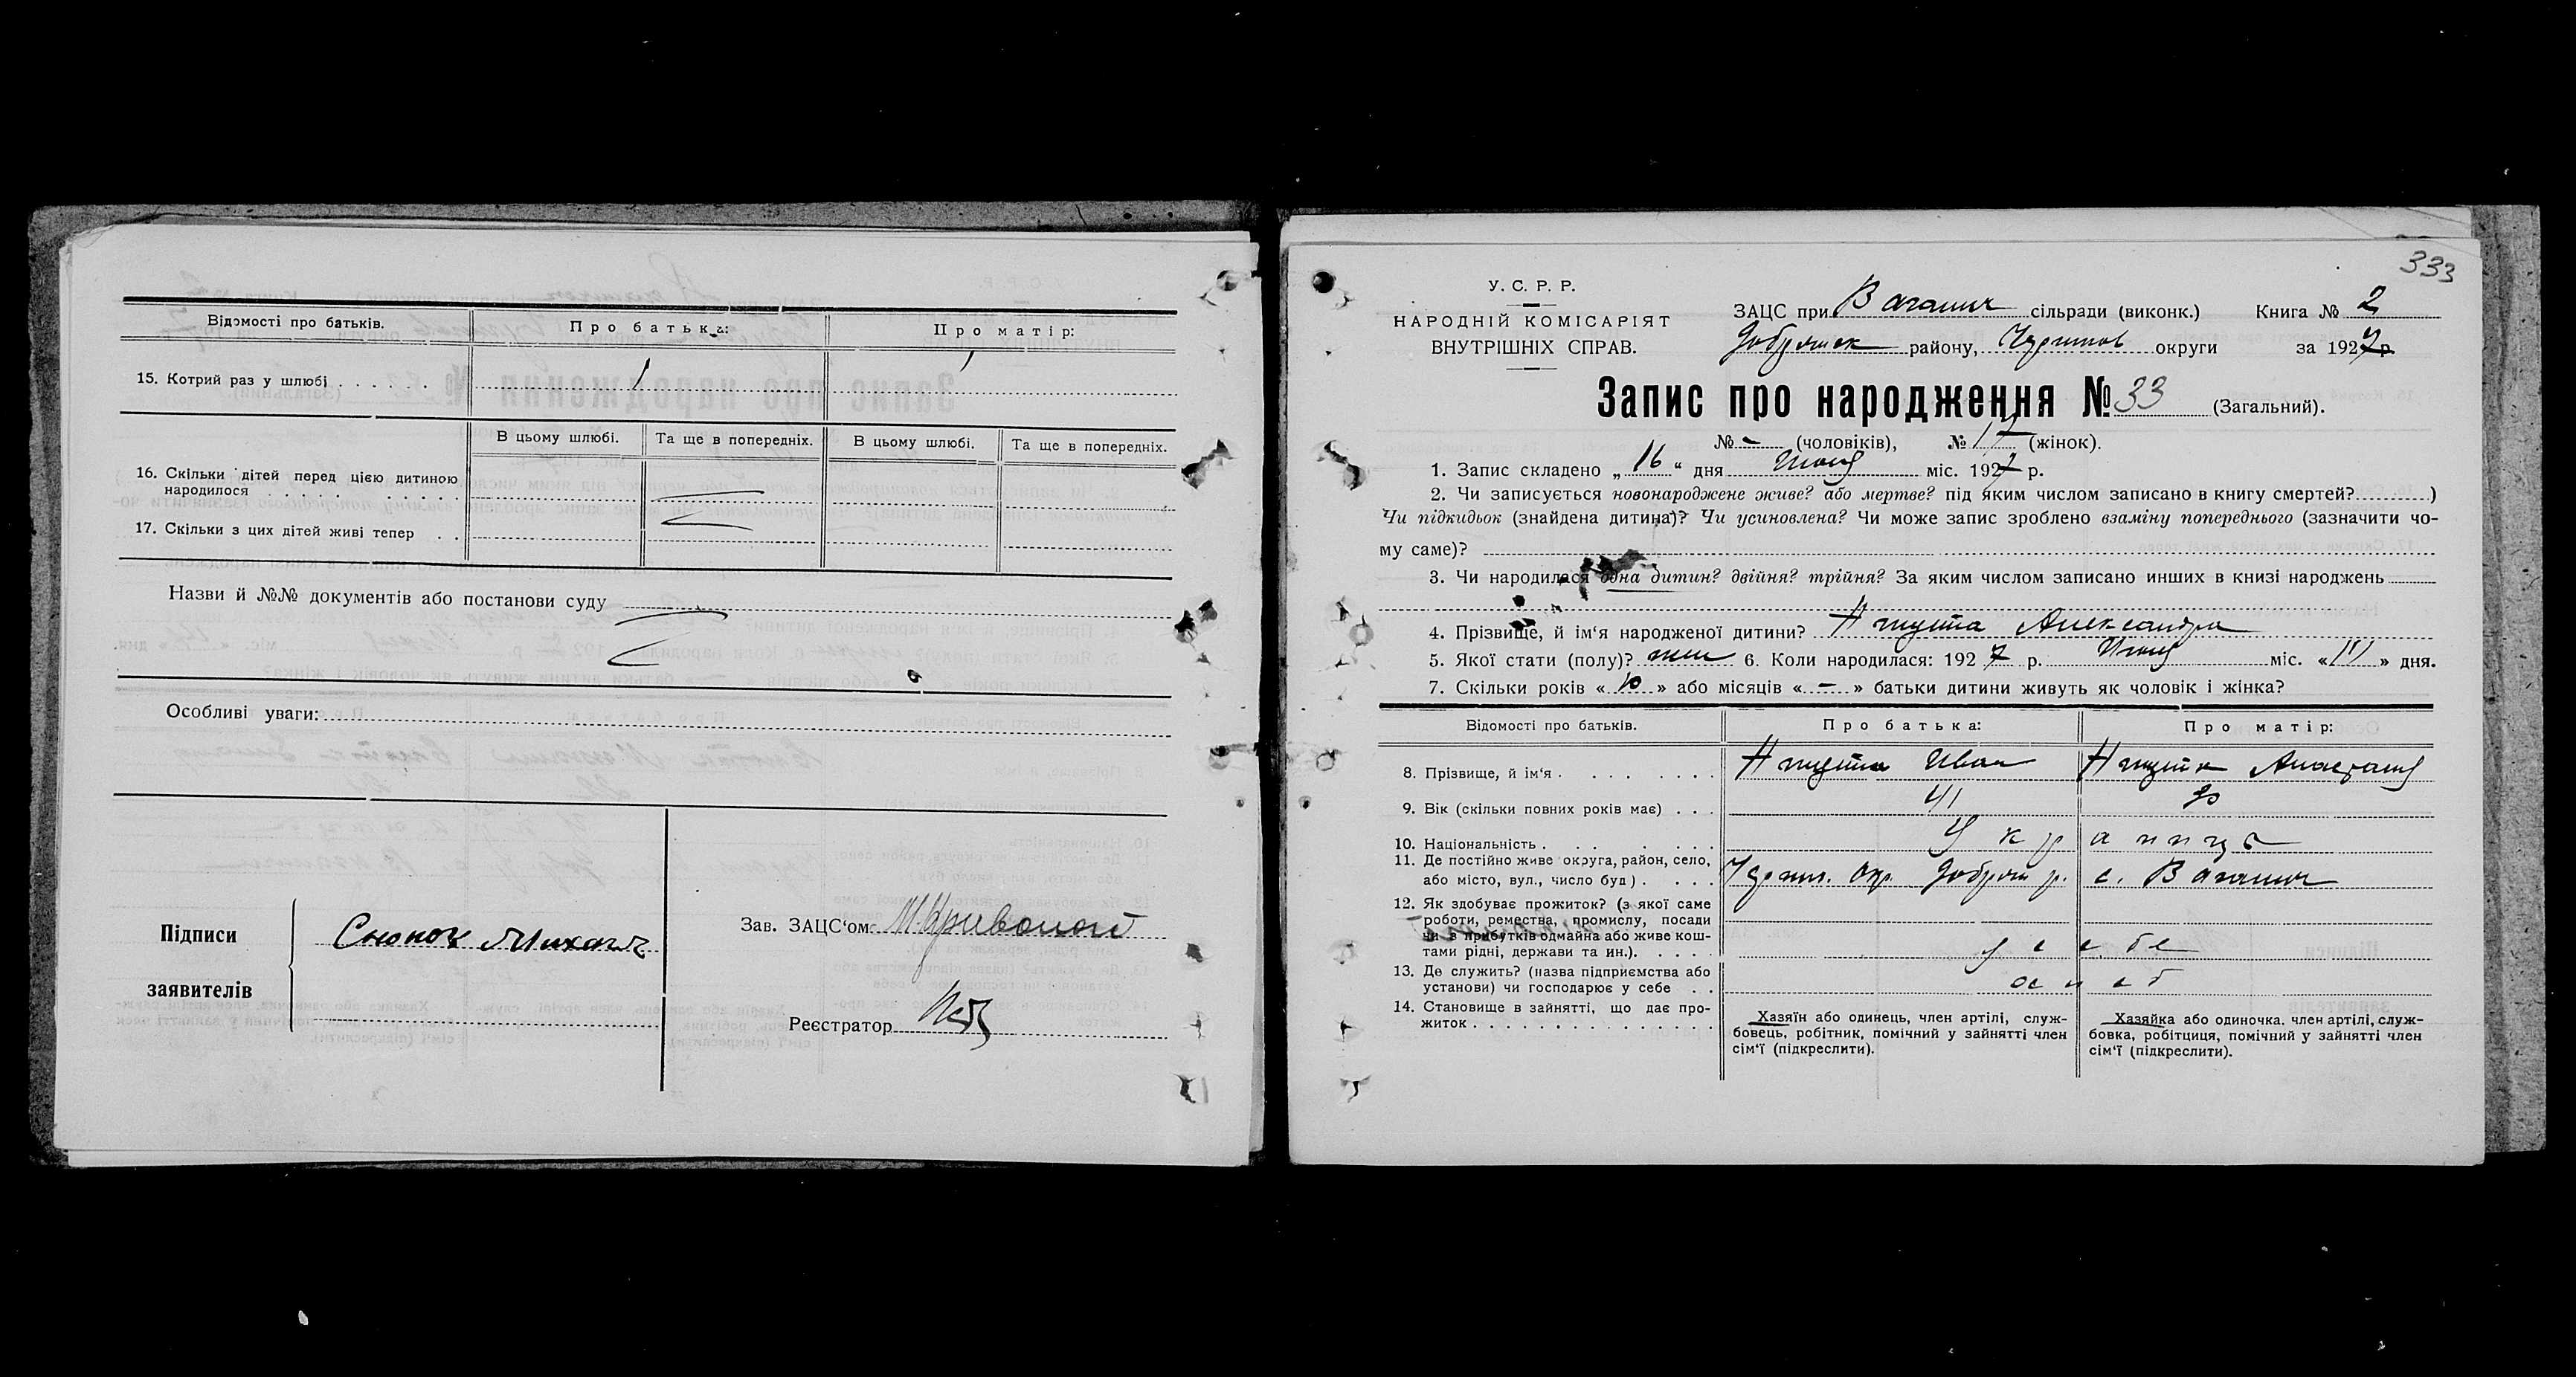 Відомості про батьків. Про батька: Про матір:
15. Котрий раз у шлюбі 1 1
В цьому шлюбі. Та ще в попередніх. В цьому шлюбі. Та ще в попередніх.
16. Скільки дітей перед цією дитиною
народилося
17. Скільки з цих дітей живі тепер
Назви й №№ документів або постанови суду
Особливі уваги:
Підписи
заявителів
Михаил
Зав. ЗАЦС‘ом
Реєстратор
333
У. С. Р. Р.
НАРОДНІЙ КОМІСАРІЯТ
ВНУТРІШНІХ СПРАВ.
ЗАЦС при Ваганич сільради (виконк.) Книга № 2
Добрянск району, округи за 1927 р.
Запис про народження № 33 (Загальний).
№ - (чоловіків), № 17 (жінок).
1. Запис складено „16“ дня міс. 1927 р.
2. Чи записується новонароджене живе? або мертве? під яким числом записано в книгу смертей? )
Чи підкидьок (знайдена дитина)? Чи усиновлена? Чи може запис зроблено взаміну попереднього (зазначити чо-
му саме)?
3. Чи народилася одна дитин? двійня? трійня? За яким числом записано инших в книзі народжень
4. Прізвище, й ім‘я народженої дитини? Александра
5. Якої стати (полу)? жен 6. Коли народилася: 1927 р. міс. « » дня.
7. Скільки років «10» або місяців «-» батьки дитини живуть як чоловік і жінка?
Відомості про батьків. Про батька: Про матір:
8. Прізвище, й ім‘я Иван
9. Вік (скільки повних років має) 41 30
10. Національність Украинцы
11. Де постійно живе округа, район, село,
або місто, вул., число буд). Окр. р. с. Ваганич
12. Як здобуває прожиток? (з якої саме
роботи, ремества, промислу, посади
чи в прибутків одмайна або живе кош-
тами рідні, держави та ин.).
13. Де служить? (назва підприємства або
установи) чи господарює у себе
14. Становище в зайнятті, що дає про-
житок
Хазяїн або одинець, член артілі, служ-
бовець, робітник, помічний у зайнятті член
сім‘ї (підкреслити).
Хазяйка або одиночка. член артілі, служ-
бовка, робітниця, помічний у зайнятті член
сім‘ї (підкреслити).